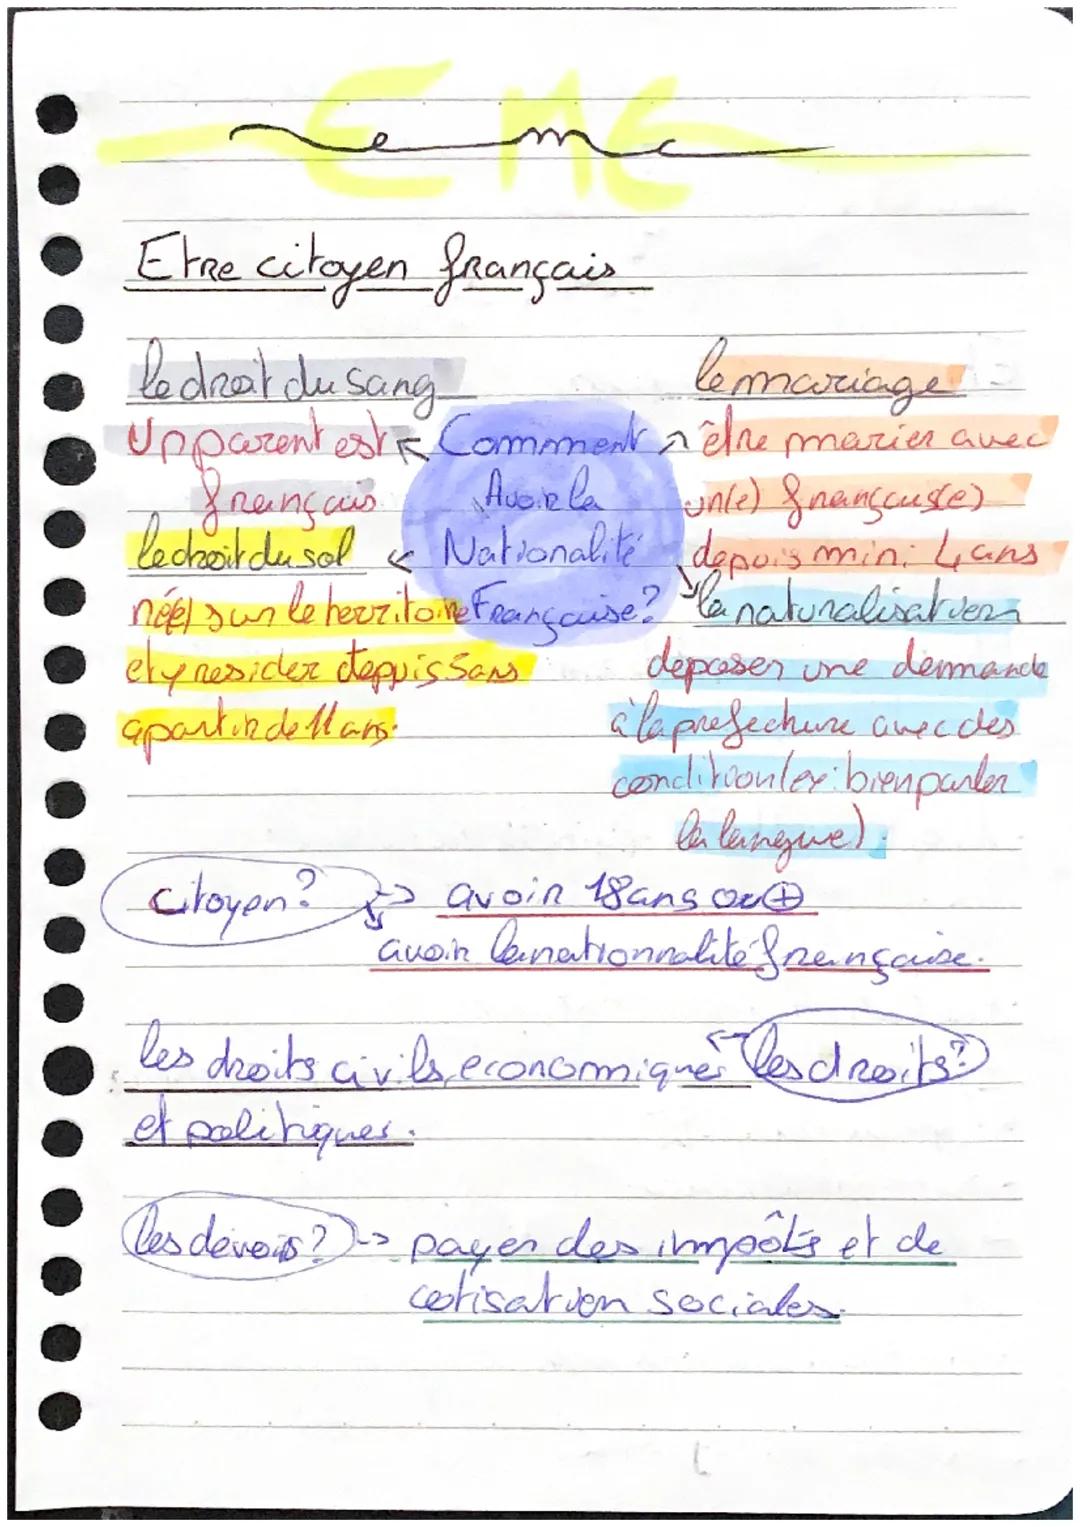 EMC
emc
Etre citoyen français
le droit du sang
Un parent est
français
le droit du sol
né(e) sur le territoire
et y resider depuis 5 ans
a partir de 11 ans.
Comment
Avoir la
Nationalité
Française?
le mariage
être marier avec
un(e) français(e)
depuis min: 4 ans
la naturalisation
deposer une demande
à la prefecture avec des
condition (ex: bien parler
la langue).
Citoyen? → avoir 18 ans ou +
avoir la nationnalité française.
les droits civils, economiques ← les droits?
et politiques.
les devoirs? → payer des impôts et de
cotisation sociales.